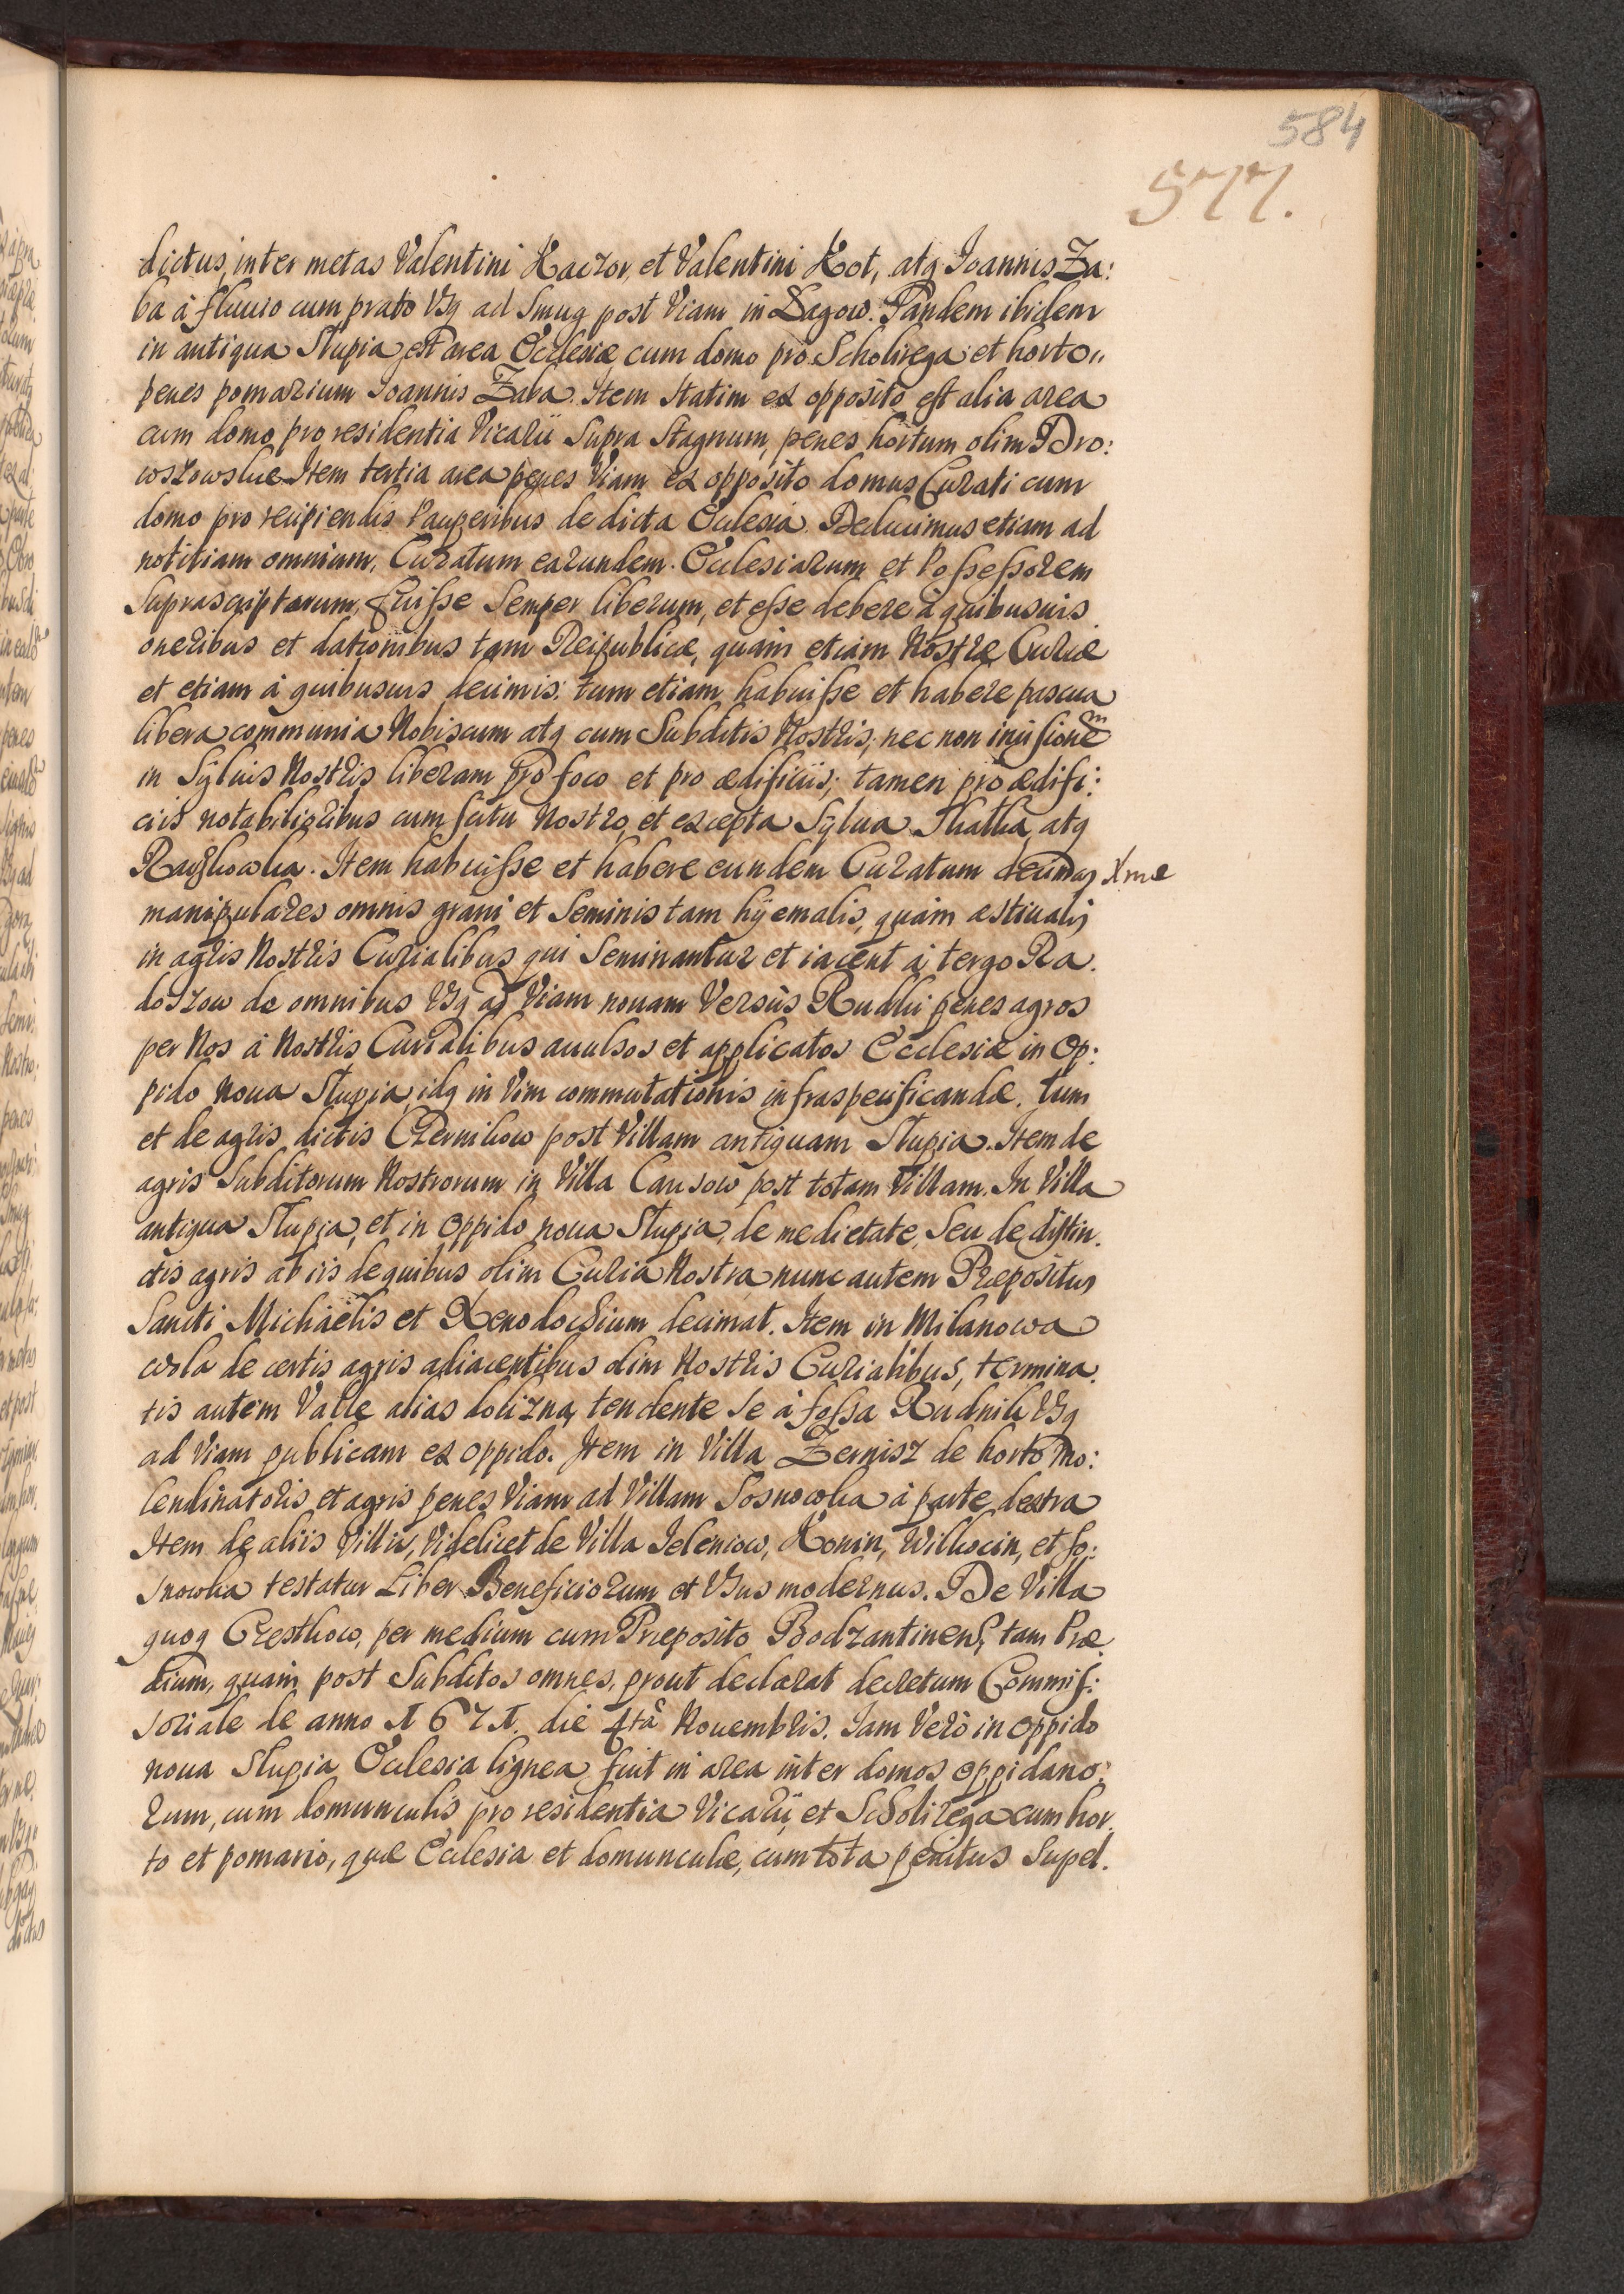 584
577.
dictus, inter metas Valentini Kaczor, et Valentini Kot, atq Joannis Za:
ba à fluuio cum prato Vsq ad Smug post Viam in Lagow. Tandem ibidem
in antiqua Slupia est area Ecclesiæ cum domo pro Scholirega et horto
penes pomarium Joannis Zaba. Item statim ex opposito est alia area
cum domo pro residentia Vicarii Supra Stagnum, penes hortum olim Dro:
woszowskie Item tertia area penes Viam ex opposito domus Curati cum
domo pro recipiendis Pauperibus de dicta Ecclesia. Deducimus etiam ad
notitiam omnium, Curatum earundem Ecclesiarum et Possessorem
Suprascriptarum, fuisse Semper liberum, et esse debere à quibusuis
oneribus et dationibus tam Reipublicæ, quàm etiam Nostræ Curiæ
et etiam à quibusuis decimis; tum etiam habuisse et habere pascua
libera communia Nobiscum atq cum Subditis Nostris, nec non incisionē
in Syluis Nostris liberam pro foco et pro ædificiis; tamen pro ædifi:
ciis notabilioribus cum scitu Nostro, et excepta Sylua Skalka, atq
Item habuisse et habere eundem Curatum decimas Xmæ
manipulares omnis grani et Seminis tam hyemalis, quàm æstiualis
in agris Nostris Curialibus qui Seminantur et iacent à tergo Ra.
doszow de omnibus Vsq ad Viam nouam Versùs Rudki penes agros
per Nos à Nostris Curialibus auulsos et applicatos Ecclesiæ in Op:
pido Noua Slupia, idq in Vim commutationis infraspecificandæ, tum
et de agris dictis Czernikow post Villam antiquam Slupia. Item de
agris Subditorum Nostrorum in Villa Causow post totam Villam. In Villa
antiqua Slupia, et in Oppido noua Slupia, de medietate, Seu de distin.
ctis agris ab iis de quibus olim Curia Nostra nunc autem Præpositus
Sancti Michaëlis et Xenodochium decimat. Item in Milanowa
wola de certis agris adiacentibus olim Nostris Curialibus, termina.
tis autem Valle alias dolizna, tendente se à fossa Rudnik Vsq
ad Viam publicam ex oppido. Item in Villa Zernisz de horto Mo:
lendinatoris, et agris penes Viam ad Villam Sosnowka à parte dextra
Item de aliis Villis, Videlicet de Villa Jeleniow, Konin, Wilkocin, et So:
snowka testatur Liber Beneficiorum et Vsus modernus. De Villa
quoq Czestkow, per medium cum Præposito Bodzantinens, tam Præ
dium, quàm post Subditos omnes, prout declarat decretum Commis:
soriale de anno 1671. die 4tâ Nouembris. Iam Verò in oppido
noua Slupia Ecclesia lignea fuit in area inter domos oppidano:
rum, cum domunculis pro residentia Vicarii, et Scholirega cum hor
to et pomario, quæ Ecclesia et domunculæ, cum tota penitus Supel.